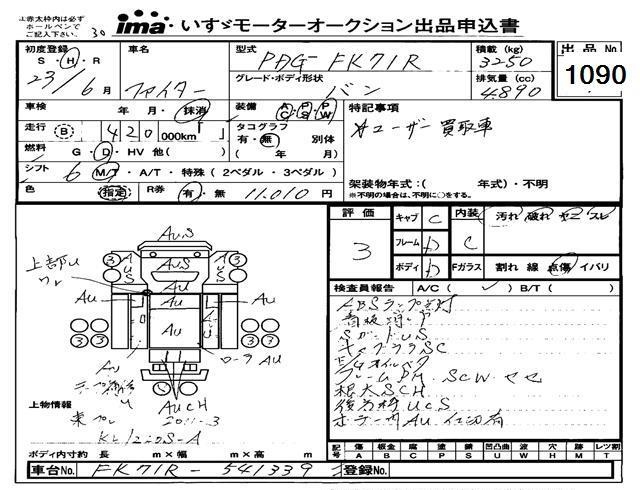 ※赤太枠内は必ず
ホールペンで
ご記入下さい。
30
ima いすゞモーターオークション出品申込書
初度登録 S・H・R 23/6月
車名 ファイター
型式 PDG-FK71R
グレード・ボディ形状 バン
積載 (kg) 3250
排気量 (cc) 4890
出品No. 1090
車検 年 月・抹消
装備 AC・PS・PW
走行 B 420 000km
タコグラフ 有・無 別体 ( 年 月)
燃料 G・D・HV 他( )
シフト 6 M/T・A/T・特殊 (2ペダル・3ペダル)
色 指定 R券 有・無 11,010円
特記事項
ユーザー買取車
架装物年式:( 年式)・不明
※不明の場合は、不明に○をする。
評価 3
キャブ C
フレーム D
ボディ D
内装 C
汚れ 破れ ヤニ スレ
Fガラス 割れ 線 点傷 イバリ
検査員報告 A/C ( ) B/T ( )
ABSランプ点灯
看板消し
SガードUS
キャブウラSC
E/Gオイル
フレームPM. SCW
根太SCH
後
AU 仕切有
AUS
AUS
AU
AUS
上部U
AU
AU
AU
AU
AUCH
③
③
③
③
上物情報
東プレ 2011-3
ボディ内寸約 長 m×幅 m×高 m
記号 傷 板金 腐 塗 錆 凹凸曲 波 穴 跡 レツ割
A B C P S U W H M T
車台No. FK71R-541339
登録No.